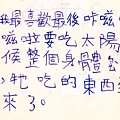 我最喜歡最後咔嗞
嗞啦要吃太陽
候整個身體公
心牠吃的東西
來了。